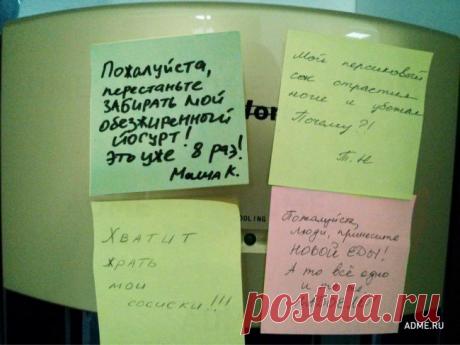 Пожалуйста,
перестаньте
ЗАБИРАТЬ МОЙ
обезжиренный
ЙОГУРТ!
Это уже 8 раз!
Маша К.
Мой персиковый
сок отрастил
ноги и убежал
Почему?!
Т.Н
OOLING
ХВАТИТ
ЖРАТЬ
МОИ
СОСИСКИ!!!
Пожалуйста,
люди, принесите
НОВОЙ ЕДЫ!
А то всё одно
и то же
postila.ru
ADME.RU